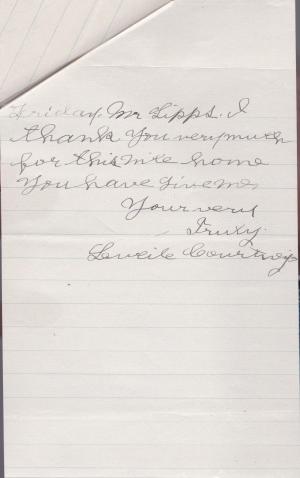 Friday, Mr Lipps. I
thank You very much
for this nice home
You have give me,
Your very
Truly.
Courtney